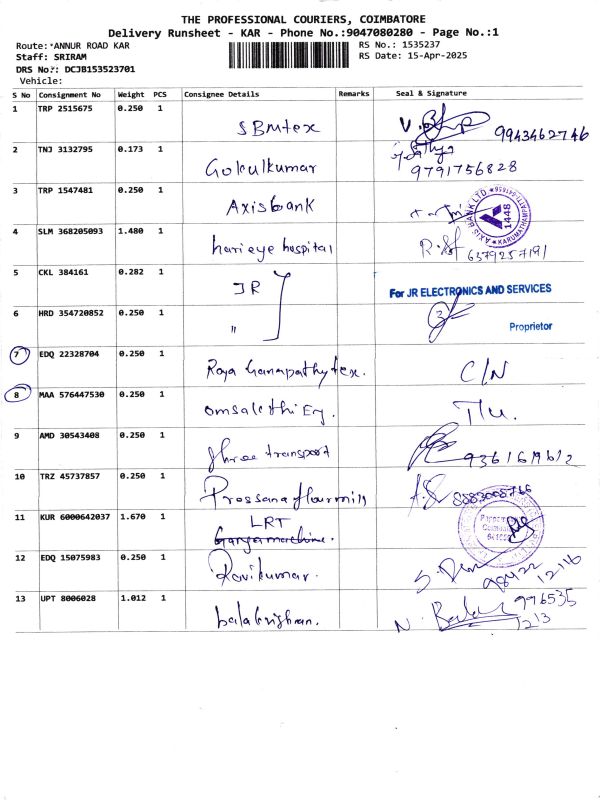 THE PROFESSIONAL COURIERS, COIMBATORE
Delivery Runsheet - KAR - Phone No.:9047080280 - Page No.:1
Route:*ANNUR ROAD KAR
RS No.: 1535237
Staff: SRIRAM
RS Date: 15-Apr-2025
DRS No?: DCJB153523701
Vehicle:
S No Consignment No Weight PCS Consignee Details Remarks Seal & Signature
1 TRP 2515675 0.250 1 SBMtex 9943462746
2 TNJ 3132795 0.173 1 Gokulkumar 9791756828
3 TRP 1547481 0.250 1 Axisbank
AXIS BANK LTD
1448
4 SLM 368205093 1.480 1 harieye hospital 6379257191
5 CKL 384161 0.282 1 JR For JR ELECTRONICS AND SERVICES
6 HRD 354720852 0.250 1 " Proprietor
7 EDQ 22328704 0.250 1 Raya Ganapathy tex. C/N
8 MAA 576447530 0.250 1 omsakthi Eg.
9 AMD 30543408 0.250 1 Shree transport 9361619612
10 TRZ 45737857 0.250 1 Prossana flourmill
11 KUR 6000642037 1.670 1 LRT
12 EDQ 15075983 0.250 1 Ravikumar.
13 UPT 8006028 1.012 1 balakrishnan. 996535
1213